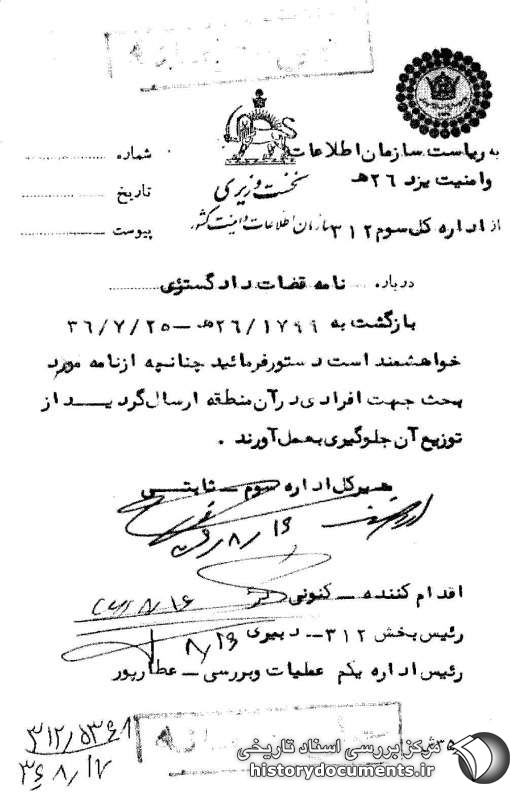 به ریاست سازمان اطلاعات
وامنیت یزد ۲۶ هـ
از اداره کل سوم ۳۱۲
نخست وزیری
سازمان اطلاعات و امنیت کشور
شماره
تاریخ
پیوست
درباره نامه قضات دادگستری
بازگشت به ۲۶/۱۷۹۹هـ - ۳۶/۷/۲۵
خواهشمند است دستور فرمائید چنانچه از نامه مورد
بحث جهت افرادی در آن منطقه ارسال گردید از
توزیع آن جلوگیری بعمل آورند .
مدیرکل اداره سوم - ثابتی
۸/۱۶
اقدام کننده - کنونی
۸/۱۶
رئیس بخش ۳۱۲ - دبیری
۸/۱۶
رئیس اداره یکم عملیات وبررسی - عطارپور
۳۶/۸/۱۷
مرکز بررسی اسناد تاریخی
historydocuments.ir